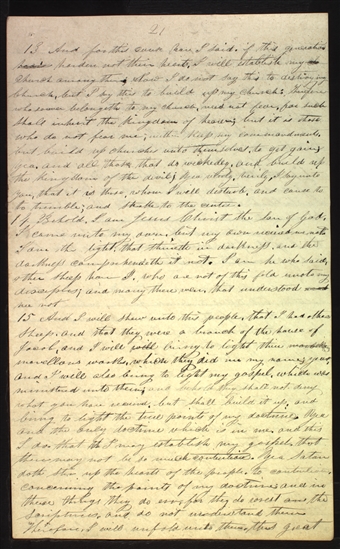 21
13 And for this cause have I said, if this generation
harden not their hearts, I will establish my
Church among them. Now I do not say this to destroy my
church, but I say this to build up my church; therefore
whosoever belongeth to my church, need not fear, for such
shall inherit the kingdom of heaven; but it is those
who do not fear me, neither keep my commandments,
but build up churches unto themselves, to get gain;
yea, and all those that do wickedly, and build up
the kingdom of the devil; yea verily, verily, I say unto
you, that it is those, whom I will disturb, and cause to
to tremble, and shake to the center.
14 Behold, I am Jesus Christ the Son of God,
I came unto my own, but my own received me not.
I am the light, that shineth in darkness, and the
darkness comprehendeth it not. I am he who said,
other sheep have I, who are not of this fold unto my
disciples; and many there were, that understood
me not
15 And I will shew unto this people, that I had other
sheep, and that they were a branch of the house of
Jacob, and I will bring to light their
marvellous works, which they did in my name; yea,
and I will also bring to light my gospel, which was
ministered unto them; and behold they shall not deny
what you have received, but shall build it up, and
bring to light the true points of my doctrine. Yea
and the only doctrine which is in me, and this
I do, that I may establish my gospel, that
there may not be so much contention. Yea Satan
doth stir up the hearts of the people, to contention,
concerning the points of my doctrine; and in
these things they do err, for they do wrest the
Scriptures, and do not understand them
Therefore, I will unfold unto them, this great